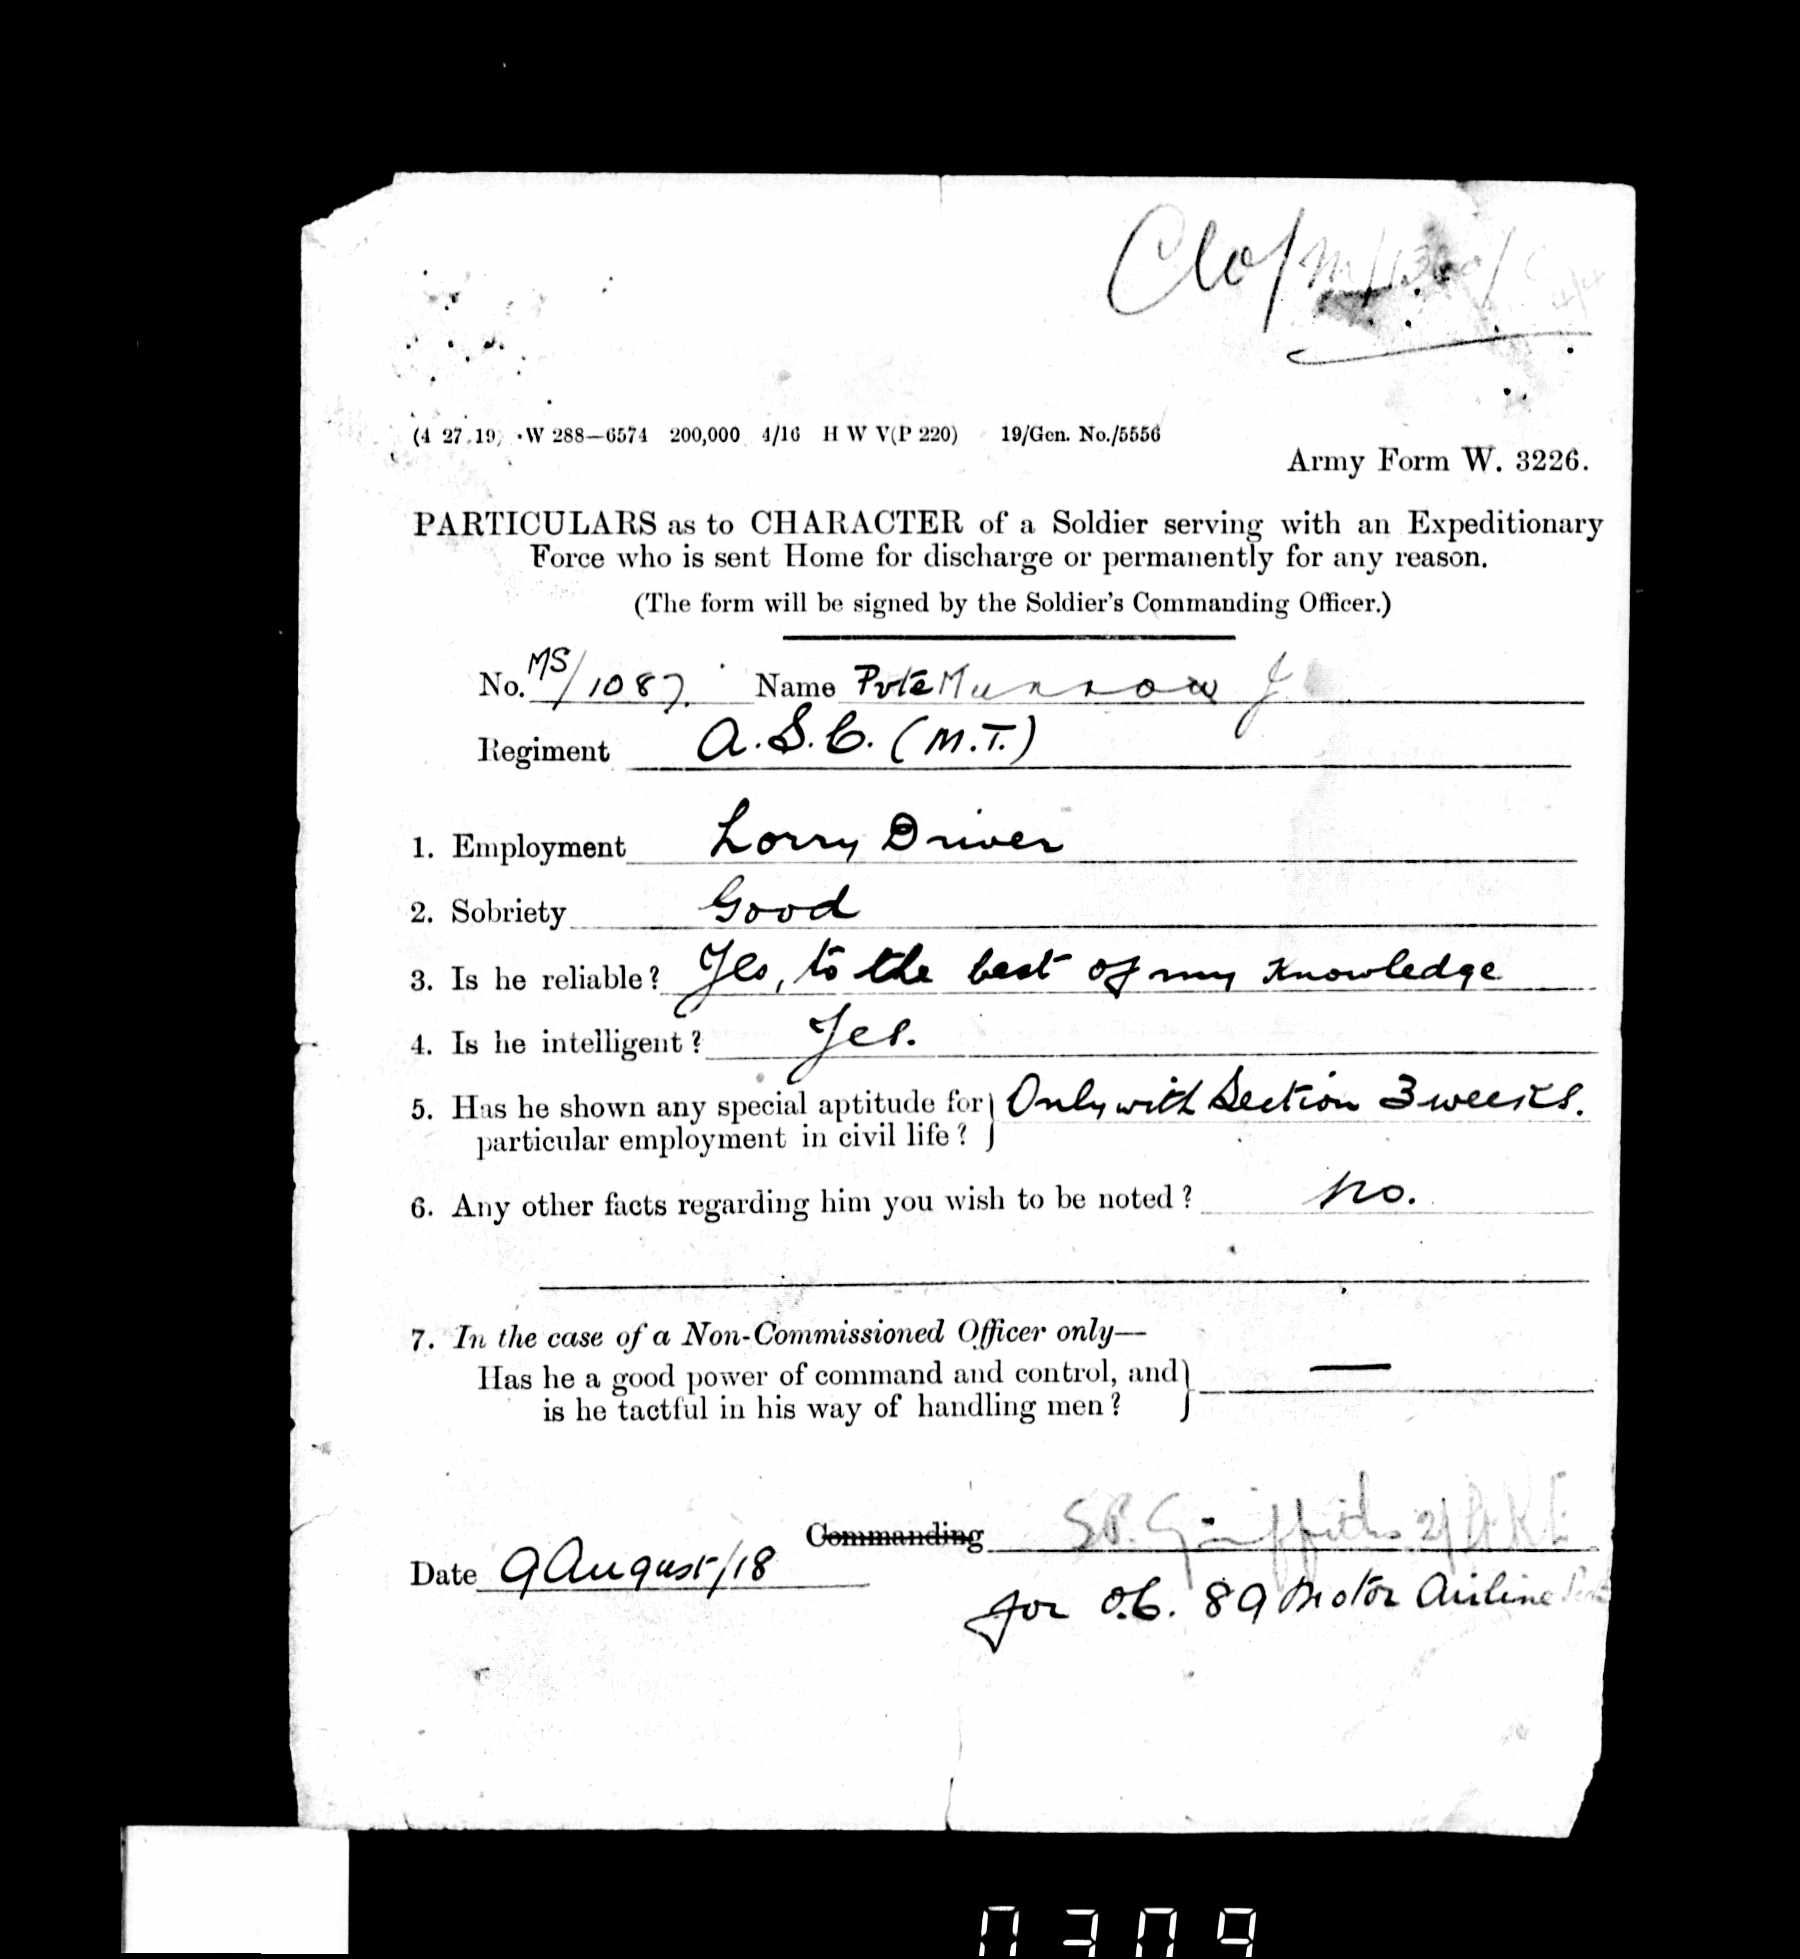 Clo/M/1360/
(4 27.19) W 288—6574 200,000 4/16 H W V(P 220) 19/Gen. No./5556
Army Form W. 3226.
PARTICULARS as to CHARACTER of a Soldier serving with an Expeditionary
Force who is sent Home for discharge or permanently for any reason.
(The form will be signed by the Soldier's Commanding Officer.)
No. MS/1087. Name Pvte Munrow J
Regiment A.S.C. (M.T.)
1. Employment Lorry Driver
2. Sobriety Good
3. Is he reliable? Yes, to the best of my knowledge
4. Is he intelligent? Yes.
5. Has he shown any special aptitude for } Only with Section 3 weeks.
particular employment in civil life?
6. Any other facts regarding him you wish to be noted? No.
7. In the case of a Non-Commissioned Officer only—
Has he a good power of command and control, and } —
is he tactful in his way of handling men?
Commanding S.P. Griffiths 2/Lt R.E
Date 9 August/18
for O.C. 89 Motor Airline
0309